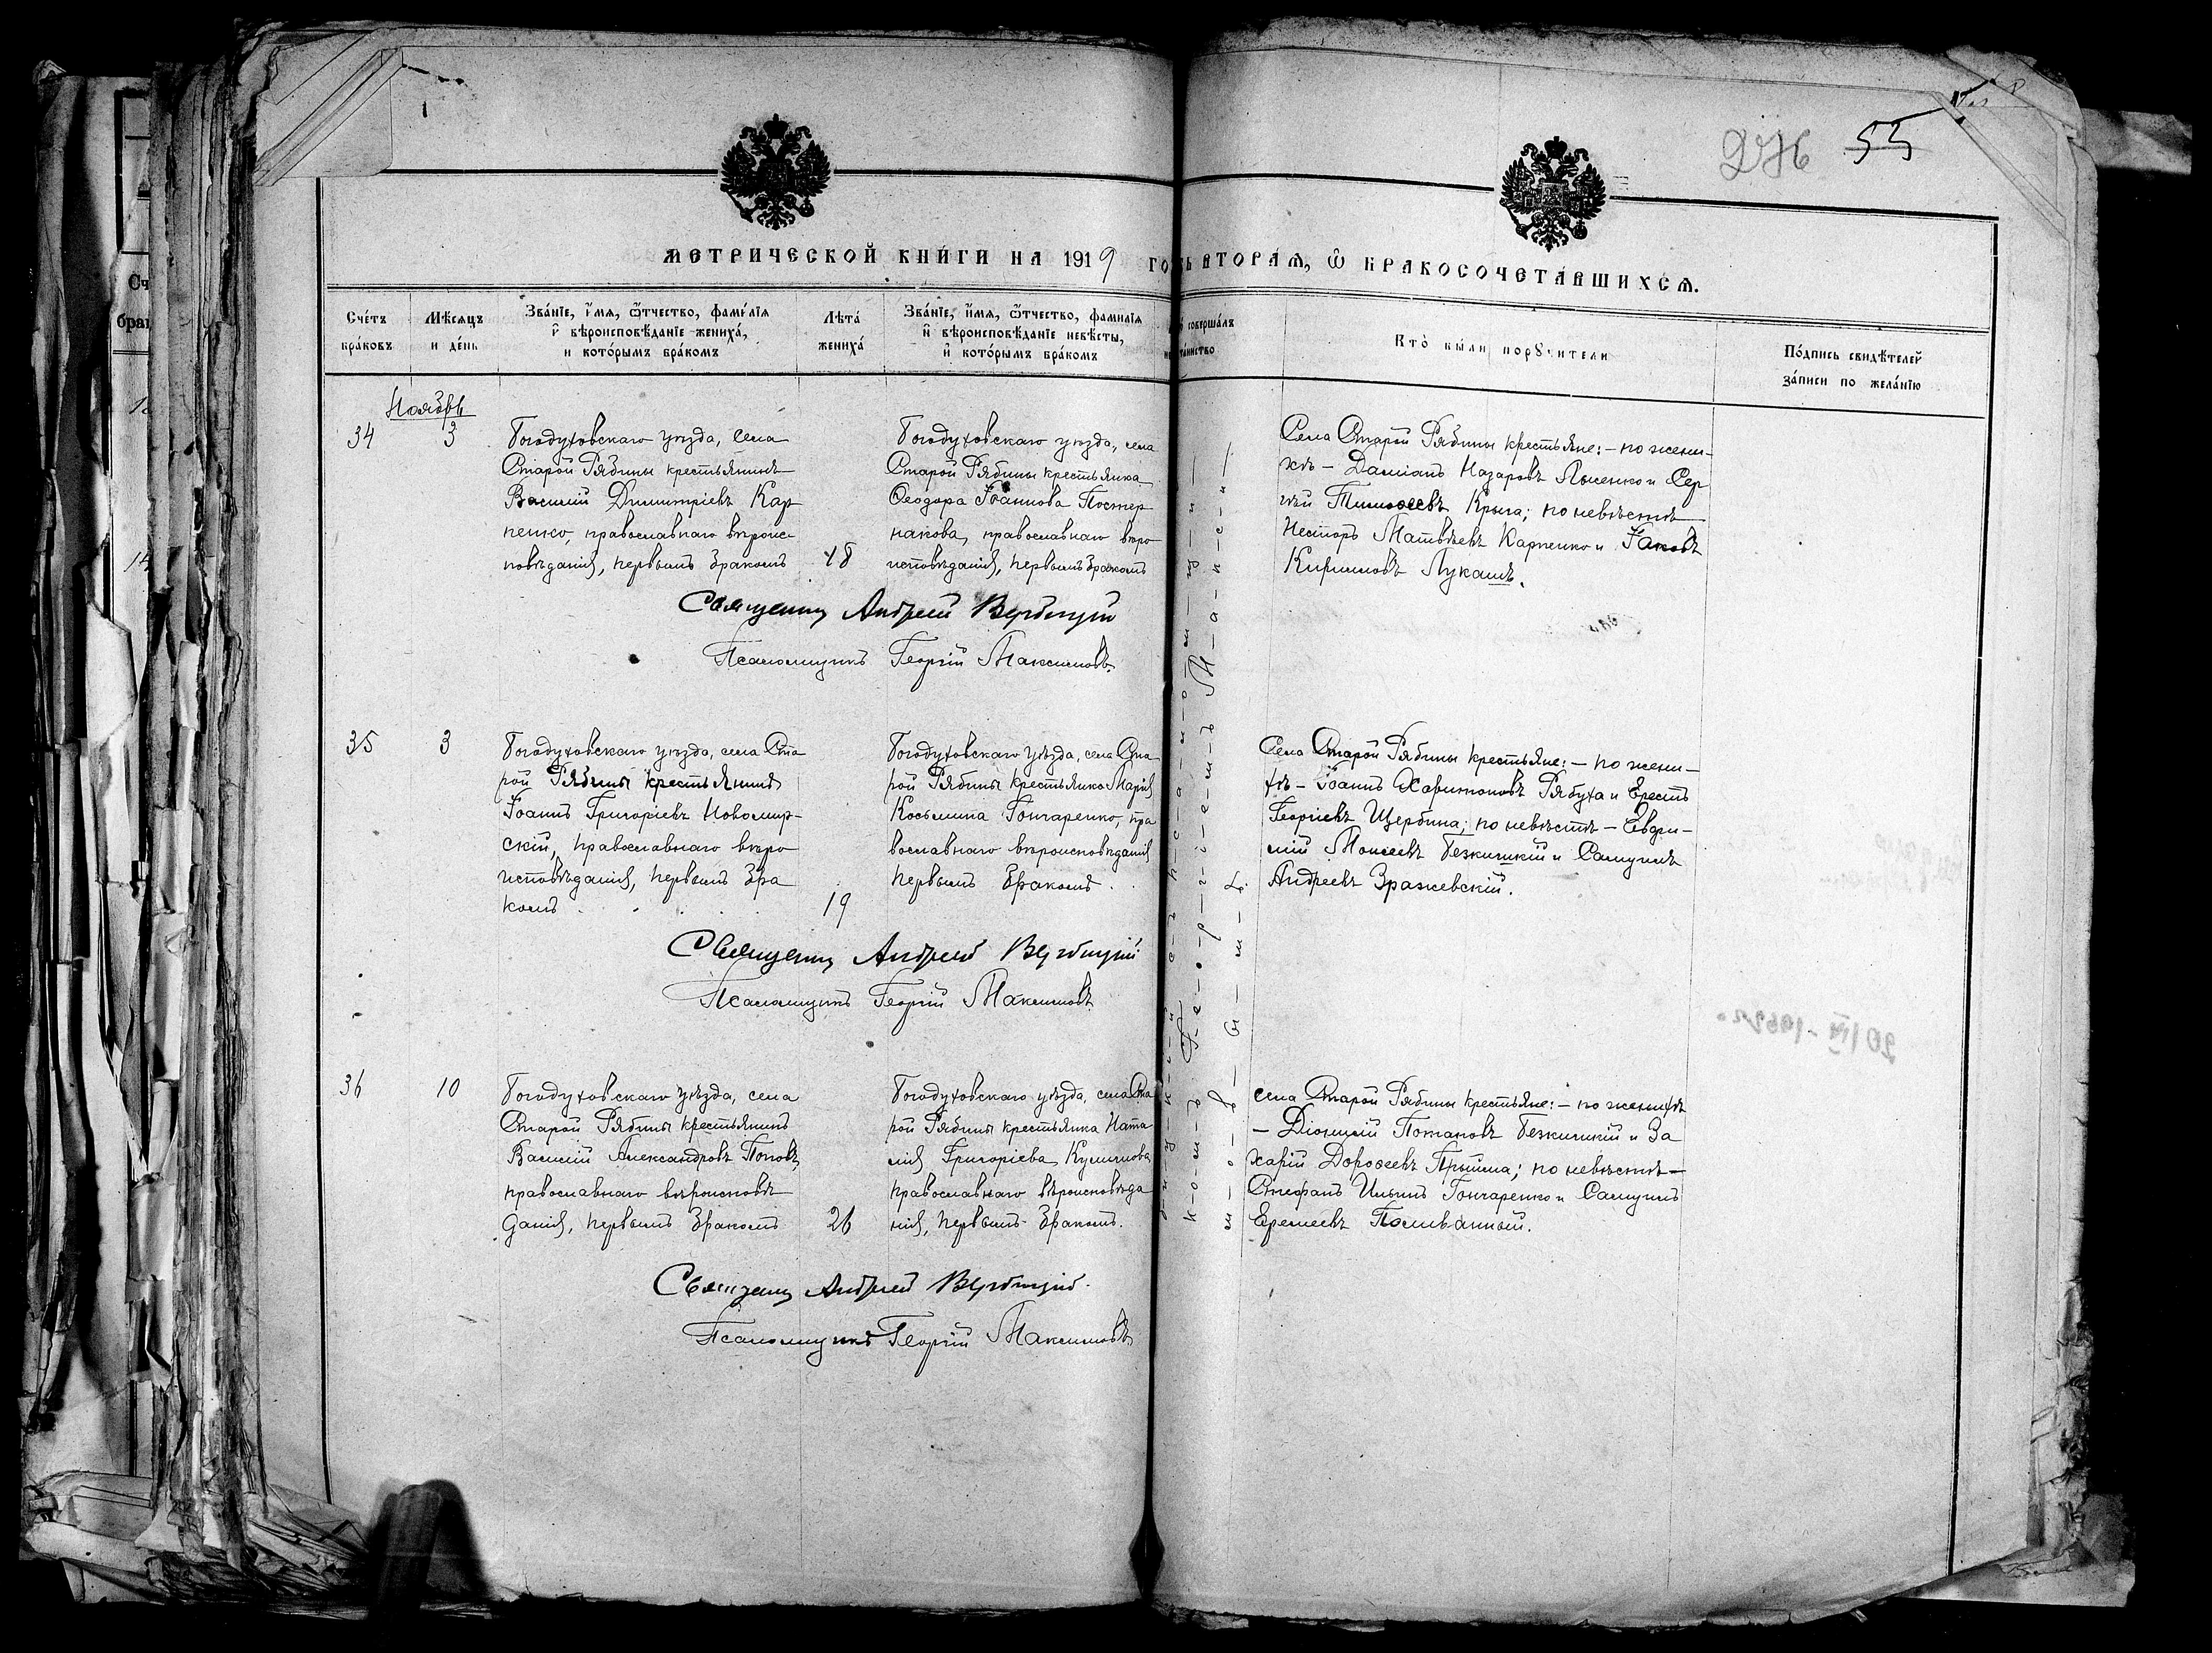 276 55
МЕТРИЧЕСКОЙ КНИГИ НА 1919 ГОДЪ ВТОРАЯ, Ѿ БРАКОСОЧЕТАВШИХСЯ.
Счетъ браковъ
Мѣсяцъ и день
Званіе, имя, ѿтчество, фамилія и вѣроисповѣданіе жениха, и которымъ бракомъ
Лѣта жениха
Званіе, имя, ѿтчество, фамилія и вѣроисповѣданіе невѣсты, и которымъ бракомъ
совершалъ
таинство
Кто были поручители
Подпись свидѣтелей записи по желанію
Ноябрь
34
3
Богодуховскаго уѣзда, села
Старой Рябины крестьянинъ
Василій Димитріевъ Кар
пенко, православнаго вѣроис-
повѣданія, первымъ бракомъ
18
Богодуховскаго уѣзда, села
Старой Рябины крестьянка
Ѳеодора Іоаннова Постер
накова, православнаго вѣро
исповѣданія, первымъ бракомъ
Села Старой Рябины крестьяне: - по жени-
хѣ - Даміанъ Назаровъ Ляшенко и Сер
гѣй Тимоѳеевъ Крыга; по невѣстѣ
Несторъ Матвѣевъ Карпенко и Іаковъ
Кирилловъ Лукашъ.
Священникъ Андрей Вербицкій
Псаломщикъ Георгій Максимовъ.
35
3
Богодуховскаго уѣзда, села Ста
рой Рябины крестьянинъ
Іоаннъ Григоріевъ Новомир-
скій, православнаго вѣро
исповѣданія, первымъ бра
комъ
19
Богодуховскаго уѣзда, села Ста
рой Рябины крестьянка Марія
Косьмина Гончаренко, пра
вославнаго вѣроисповѣданія
первымъ бракомъ.
Села Старой Рябины крестьяне: - по жени-
хѣ - Іоаннъ Харитоновъ Рябуха и Орестъ
Георгіевъ Щербина; по невѣстѣ - Евѳи-
мій Моисеевъ Безкишкій и Самуилъ
Андреевъ Зражевскій.
Священникъ Андрей Вербицкій
Псаломщикъ Георгій Максимовъ.
36
10
Богодуховскаго уѣзда, села
Старой Рябины крестьянинъ
Василій Александровъ Поповъ,
православнаго вѣроисповѣ
данія, первымъ бракомъ
26
Богодуховскаго уѣзда, села Ста
рой Рябины крестьянка Ната
лія Григоріева Куличова
православнаго вѣроисповѣда
нія, первымъ бракомъ.
Села Старой Рябины крестьяне: - по женихѣ
- Діонисій Потаповъ Безкишкій и За
харій Дороѳеевъ Прыйма; по невѣстѣ -
Стефанъ Ильинъ Гончаренко и Самуилъ
Еремеевъ Поливанный.
Священникъ Андрей Вербицкій
Псаломщикъ Георгій Максимовъ